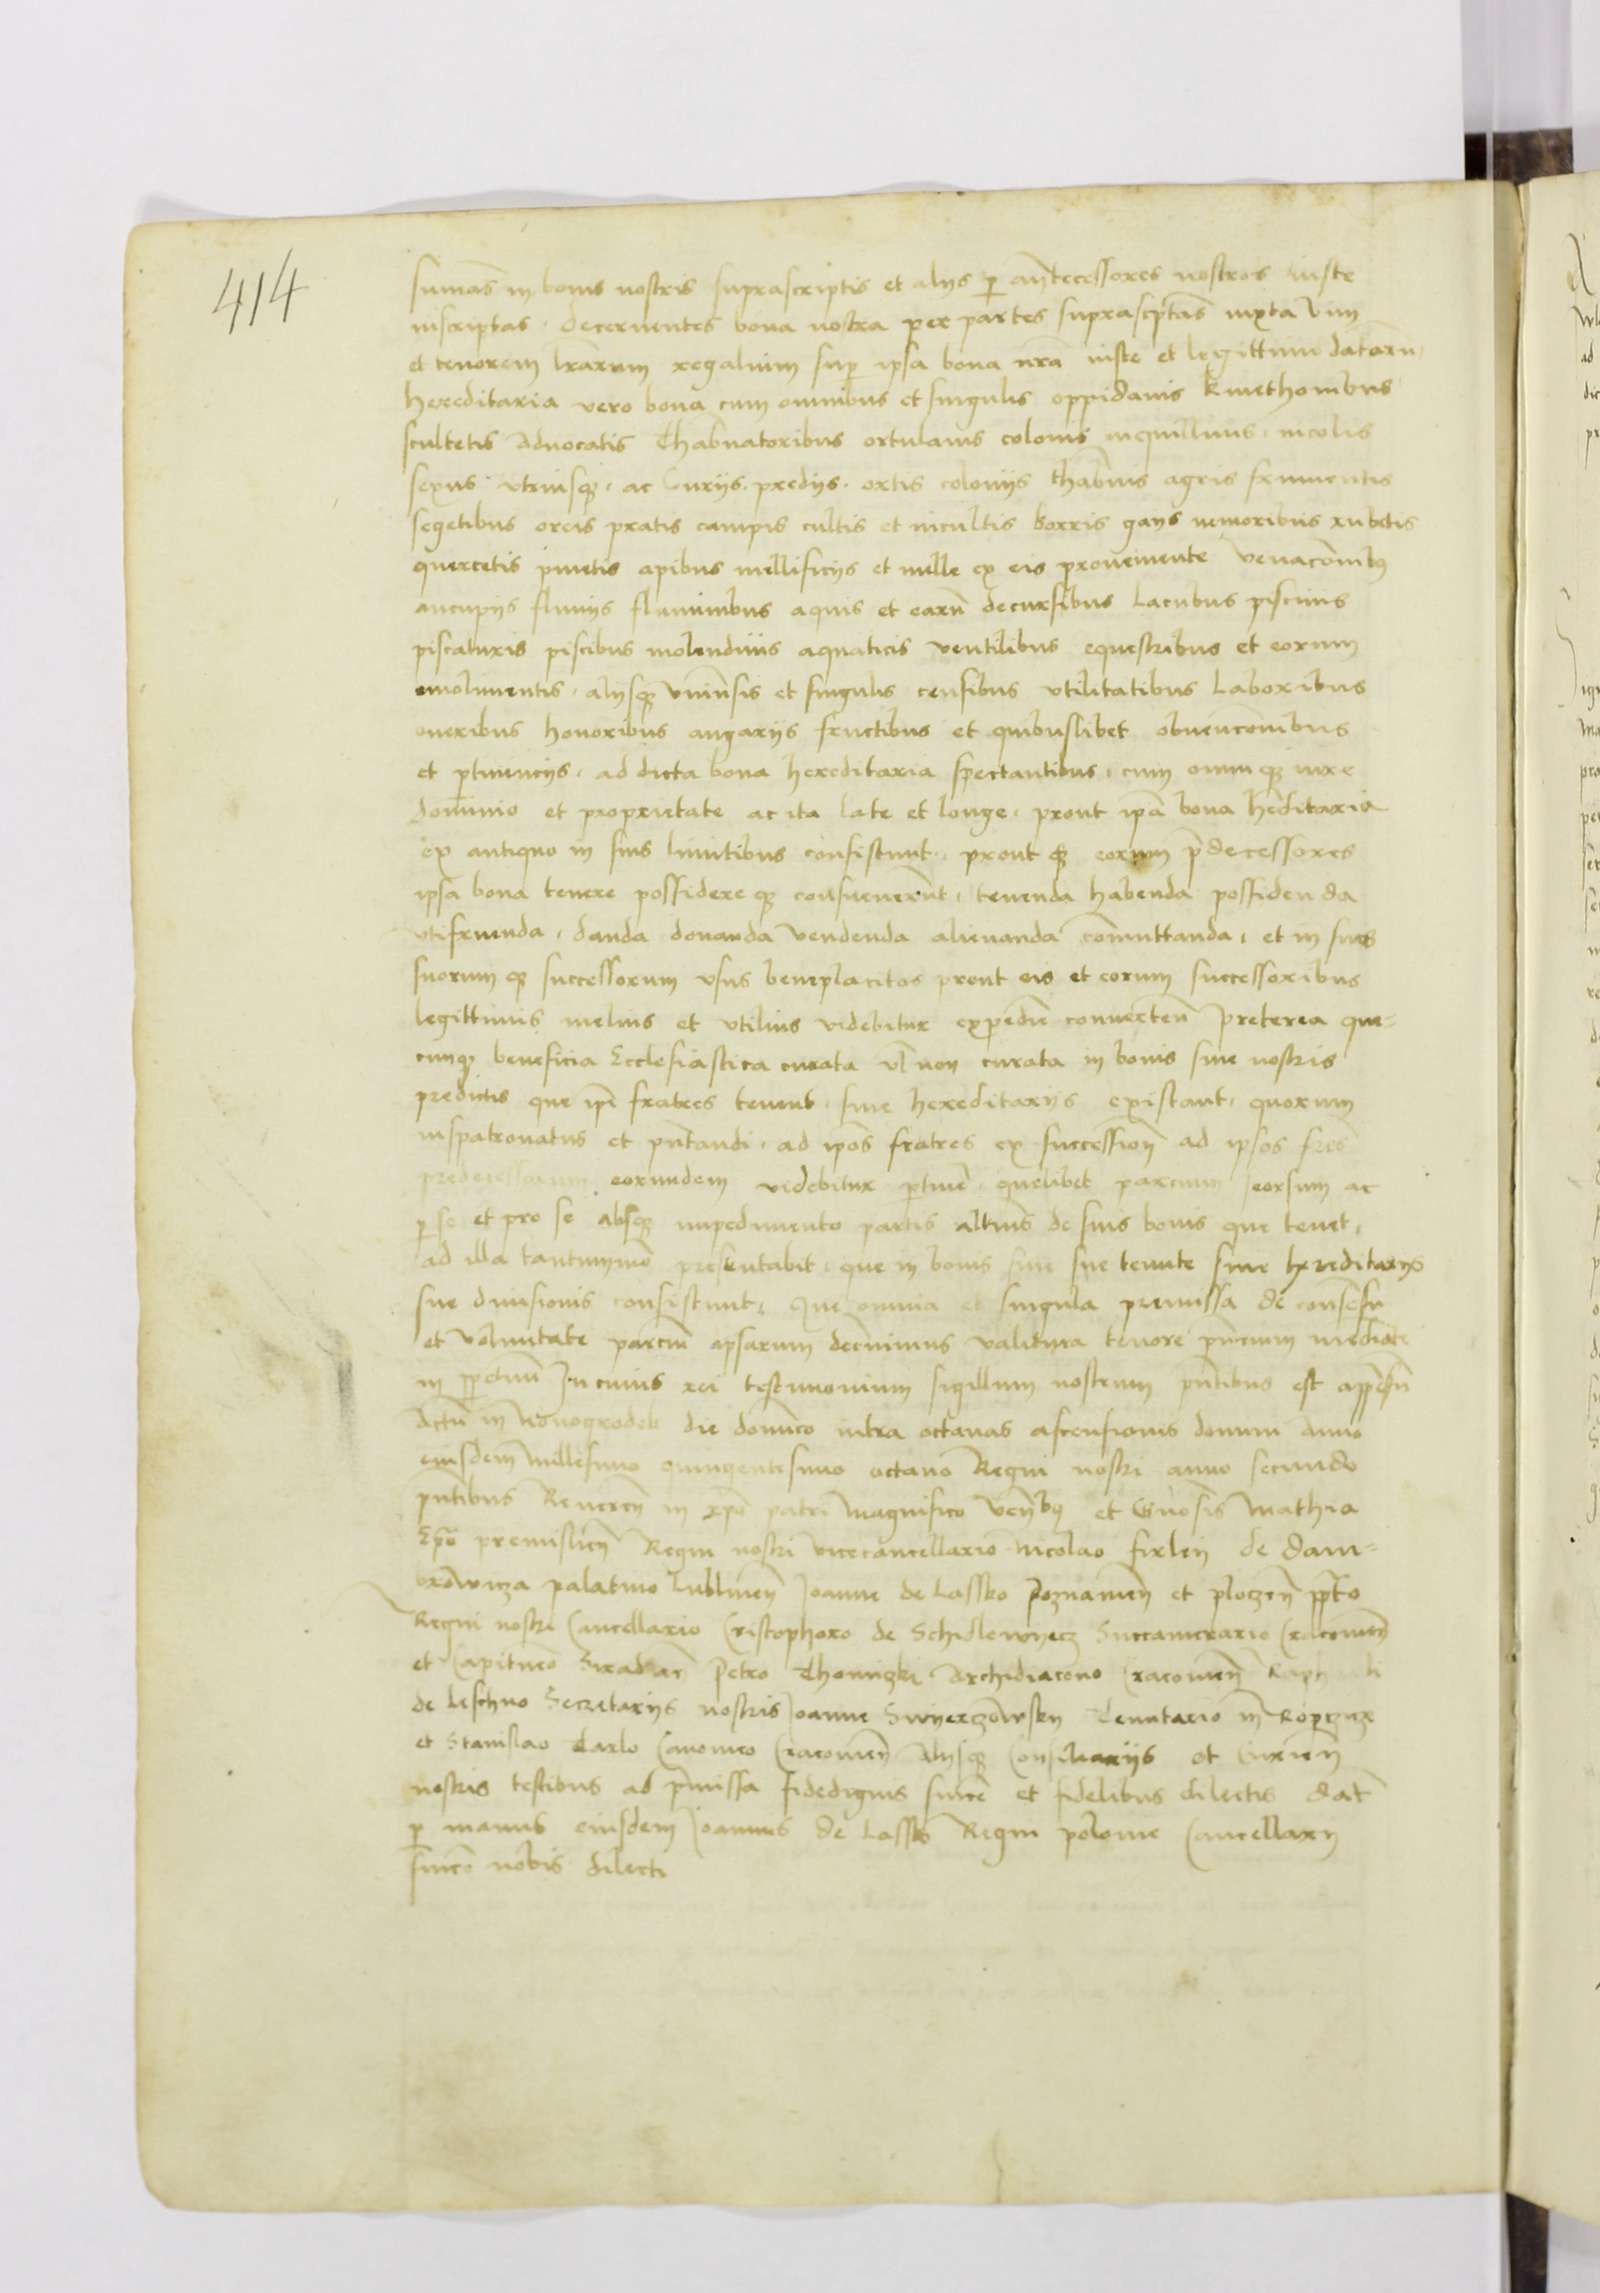 414
sumas in bonis nostris suprascriptis et alijs p antecessores nostros iuste
inscriptas. decernentes bona nostra per partes suprascptas iuxta vim
et tenorem lrarum regalium sup ipsa bona nra iuste et legittime dataru,
hereditaria vero bona cum omnibus et singulis oppidanis kmethonibus
scultetis Advocatis Thabnatoribus ortulanis colonis inquillinis, incolis
sexus utriusq, ac Curijs. predijs. ortis colonijs thabnis agris frumentis
segetibus oreis pratis campis cultis et incultis borris gays nemoribus rubetis
quercetis pinetis apibus mellificijs et melle ex eis proueniente venaconibq
aucupijs fluuijs fluminibus aquis et earu decursibus Lacubus piscinis
piscaturis piscibus molendinis aquaticis ventilibus equestribus et eorum
emolimentis, alijsq uniuersis et singulis censibus utilitatibus Laboribus
oneribus honoribus angarijs fructibus et quibuslibet obuenconibus
et ptinencijs, ad dicta bona hereditaria spectantibus, cum omniq iure
dominio et proprietate ac ita late et longe, prout ipa bona heditaria
ex antiquo in suis limitibus consistunt, proutq eorum pdecessores
ipsa bona tenere possidereq consueuerunt, tenenda habenda possidenda
utifruenda, danda donanda vendenda alienanda comuttanda, et in suos
suorumq successorum usus beneplacitos prout eis et eorum successoribus
legittimis melius et utilius videbitur expedire conuerten Preterea que=
cunq beneficia Ecclesiastica curata ul non curata in bonis siue nostris
predictis que ipi fratres tenent, siue hereditarijs existant, quorum
iuspatronatus et pntandi, ad ipos fratres ex succession ad ipsos fres
predecessorum eorundem videbitur ptine, quelibet parcium seorsum ac
p se et pro se absq impedimento partis altius de suis bonis que tenet,
ad illa tantummo presentabit, que in bonis siue sue tenute siue hereditarijs
sue diuisionis consistunt, Que omnia et singula premissa de consensu
et voluntate parciu ipsarum decernimus valitura tenore pncium mediante
in ppetuu In cuius rei testimonium sigillum nostrum pntibus est appesu
Actu in Nouogrodek die domico infra octauas ascensionis domini Anno
eiusdem Millesimo quingentesimo octauo Regni nostri anno secundo
pntibus Reueren in xpo patri Magnifico venbq et Gnosis Mathia
Epo premislien Regni nostri vicecancellario Nicolao firley de dam=
browicza palatino Lublinen Joanne de Lassko Poznanien et ploczen ppto
Regni nostri Cancellario Cristophoro de Schidlowyecz Succamerario Cracouien
et Capitneo Siradien Petro Thomiczki Archidiacono Cracouien
de Leschno Secretarijs nostris Joanne Swyerczowsky Tenutario in Ropczicze
et Stanislao Tarlo Canonico Cracouien Alijsq Consiliarijs et Curien
nostris testibus ad pmissa fidedignis since et fidelibus dilectis dat
p manus eiusdem Joannis de Lassko Regni polonie Cancellarij
since nobis dilecti